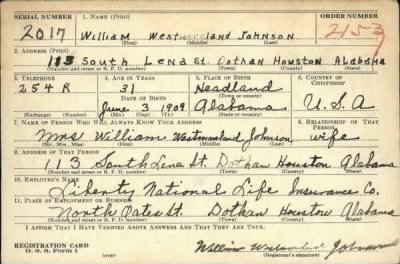 SERIAL NUMBER 1. NAME (Print) ORDER NUMBER
2017 William Westmoreland Johnson 2153
(First) (Middle) (Last)
2. ADDRESS (Print)
113 South Lena St. Dothan Houston Alabama
(Number and street or R. F. D. number) (Town) (County) (State)
3. TELEPHONE 4. AGE IN YEARS 5. PLACE OF BIRTH 6. COUNTRY OF CITIZENSHIP
254R 31 Headland
DATE OF BIRTH (Town or county)
June 3 1909 Alabama U.S.A
(Exchange) (Number) (Mo.) (Day) (Yr.) (State or country)
7. NAME OF PERSON WHO WILL ALWAYS KNOW YOUR ADDRESS 8. RELATIONSHIP OF THAT PERSON
Mrs William Westmoreland Johnson wife
(Mr., Mrs., Miss) (First) (Middle) (Last)
9. ADDRESS OF THAT PERSON
113 South Lena St. Dothan Houston Alabama
(Number and street or R. F. D. number) (Town) (County) (State)
10. EMPLOYER'S NAME
Liberty National Life Insurance Co.
11. PLACE OF EMPLOYMENT OR BUSINESS
North Oates St. Dothan Houston Alabama
(Number and street or R. F. D. number) (Town) (County) (State)
I AFFIRM THAT I HAVE VERIFIED ABOVE ANSWERS AND THAT THEY ARE TRUE.
REGISTRATION CARD
D. S. S. FORM 1 William Westmoreland Johnson
(Registrant's signature)